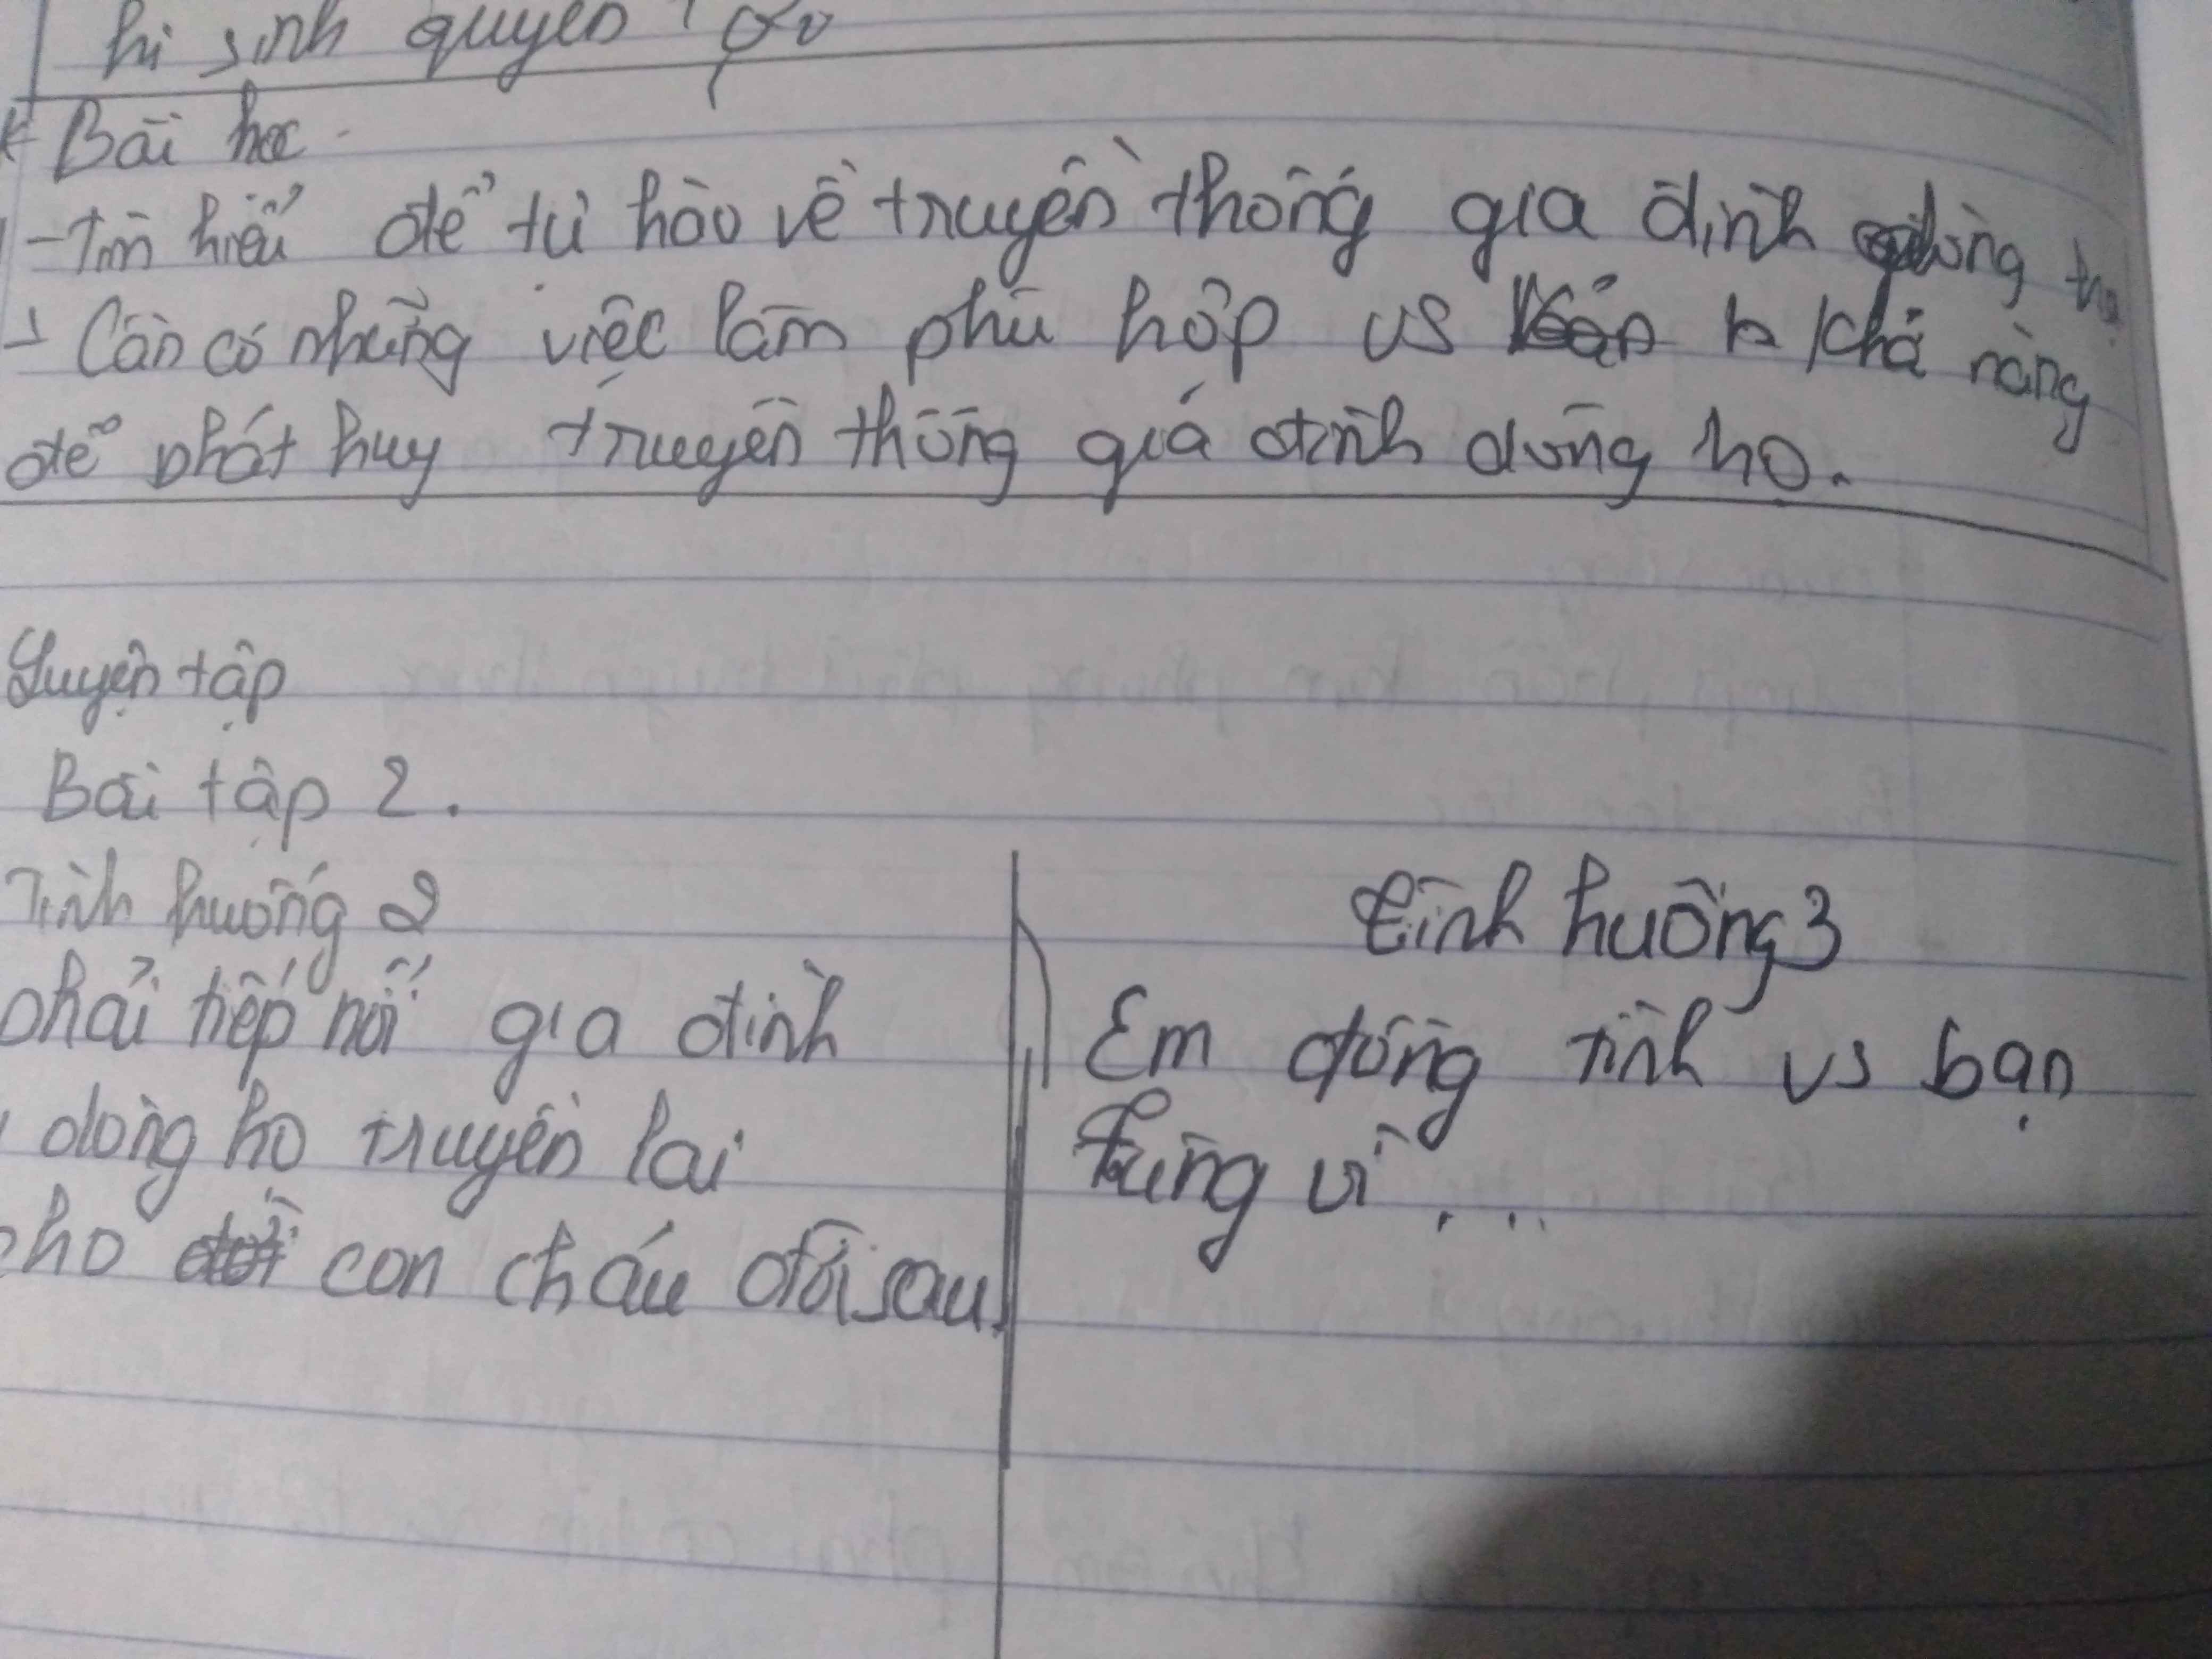 hi sinh quyền
Bài học
- Tìm hiểu để tự hào về truyền thống gia đình dòng họ
- Cần có những việc làm phù hợp vs khả năng
để phát huy truyền thống gia đình dòng họ.
Luyện tập
Bài tập 2.
Tình huống 2
phải tiếp nối gia đình
dòng họ truyền lại
cho con cháu đời sau.
tình huống 3
Em đồng tình vs bạn
Tùng vì ...